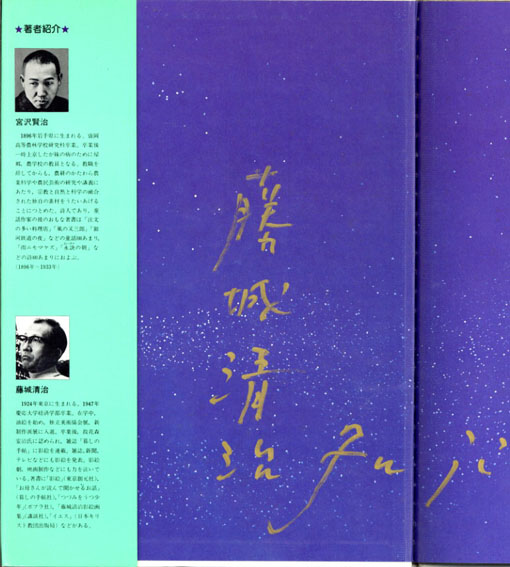 ★著者紹介★
宮沢賢治
1896年岩手県に生まれる。盛岡
高等農林学校研究科卒業。卒業後
一時上京したが妹の病のために帰
郷。農学校の教員となる。教職を
辞してからも、農耕のかたわら農
業科学や農民芸術の研究や講義に
あたり、宗教と自然と科学の融合
された独自の素材をうたいあげる
ことにつとめた。詩人であり、童
話作家の彼のおもな著書は「注文
の多い料理店」「風の又三郎」「銀
河鉄道の夜」などの童話のあまり、
「雨ニモマケズ」「永訣の朝」な
どの詩のあまりにおよぶ。
(1896年〜1933年)
藤城清治
1924年東京に生まれる。1947年
慶応大学経済学部卒業。在学中、
油絵を始め、独立美術協会展、新
制作派展に入選。卒業後、故花森
安治氏に認められ、雑誌「暮しの
手帖」に影絵を連載。雑誌、新聞、
テレビなどにも影絵を発表。影絵
劇、映画制作などにも力を注いで
いる。著書に「影絵」(東京創元社)、
「お母さんが読んで聞かせるお話」
(暮しの手帖社)、「つつみをうつ少
年」(ポプラ社)、「藤城清治影絵画
集」(講談社)、「イエス」(日本キリス
ト教団出版局)などがある。
藤城清治
Fu ji